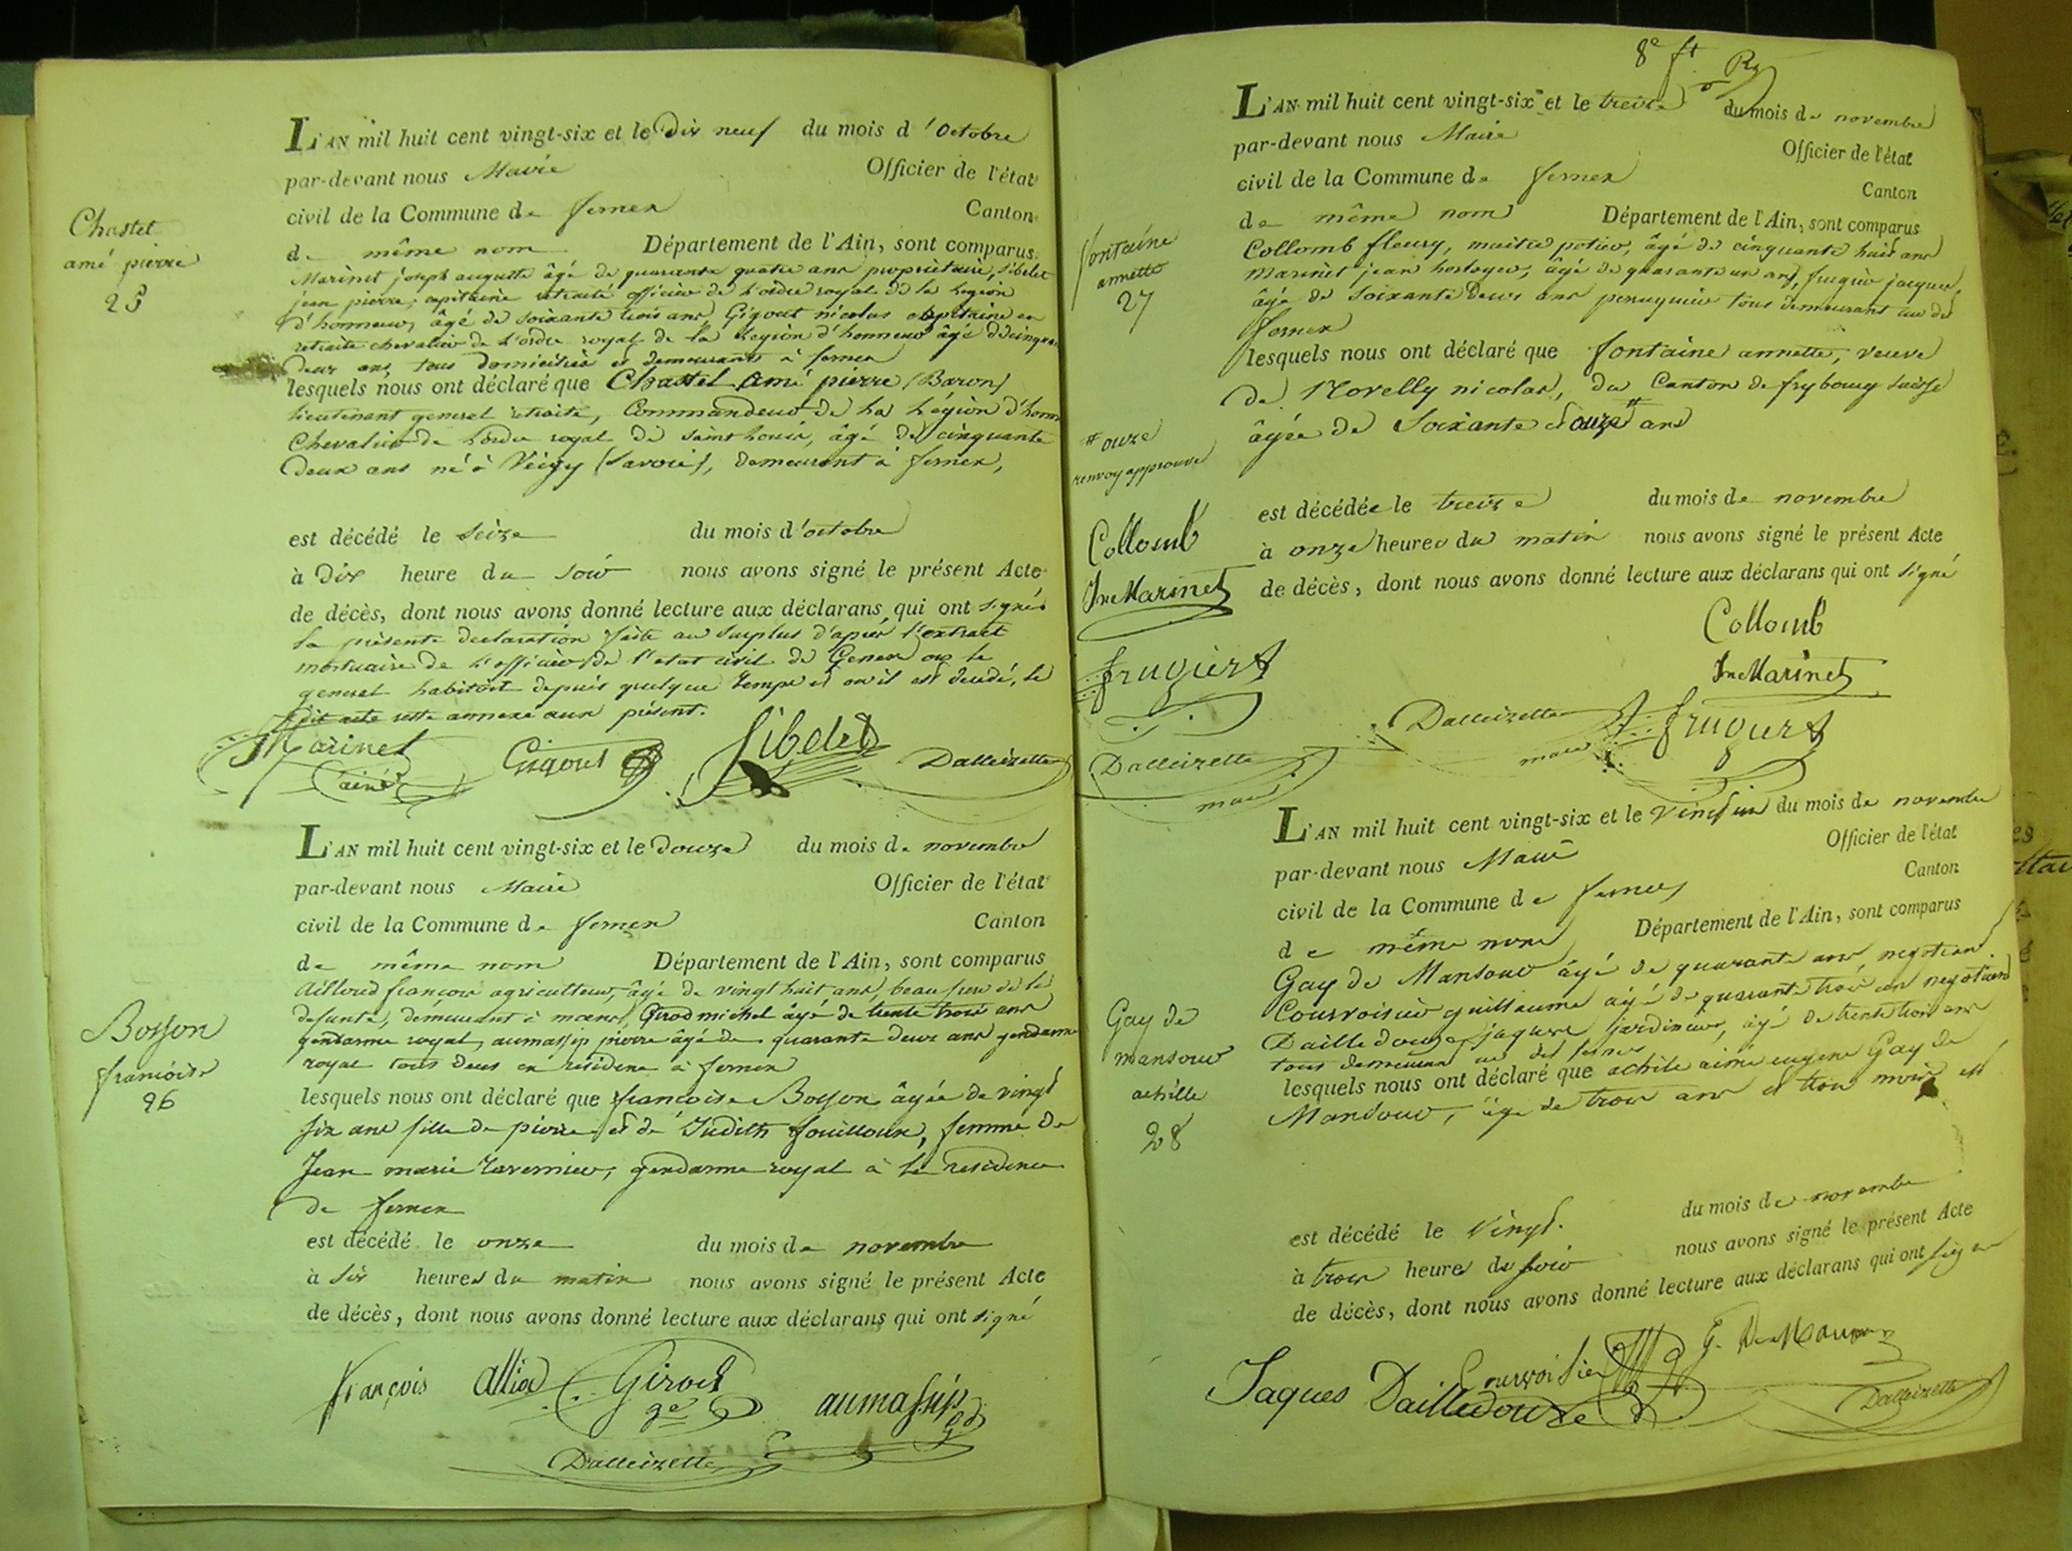 Chastel
amé pierre
25
L'AN mil huit cent vingt-six et le Dix neuf du mois d'Octobre
par-devant nous Maire Officier de l'état
civil de la Commune de fernex Canton
de même nom Département de l'Ain, sont comparus
Marinet joseph auguste âgé de quarante quatre ans propriétaire, Sibelet
jean pierre, capitaine retraité officier de L'ordre royal de la Legion
d'honneur, âgé de soixante trois ans, Gigout nicolas capitaine en
retraite chevalier de L'ordre royal de la Legion d'honneur âgé de cinquante
deux ans, tous domiciliés et demeurants à fernex
lesquels nous ont déclaré que Chastel amé pierre (Baron)
lieutenant general retraité, Commandeur de la Légion d'honn
Chevalier de L'ordre royal de saint Louis, âgé de cinquante
deux ans né à Veigy (Savoie), demeurant à fernex,
est décédé le seize du mois d'octobre
à Dix heure du soir nous avons signé le présent Acte
de décès, dont nous avons donné lecture aux déclarans qui ont signés
la présente declaration faite au surplus d'après l'extrait
mortuaire de L'officier de l'etat civil de Geneve ou le
general habitoit depuis quelque temps et ou il est decedé, le
dit acte reste annexé aux présent.
Marinet ainé Gigout Sibelet Dalleizette
Bosson
francoise
26
L'AN mil huit cent vingt-six et le douze du mois de novembre
par-devant nous Maire Officier de l'état
civil de la Commune de fernex Canton
de même nom Département de l'Ain, sont comparus
Ailloud françois agriculteur, âgé de vingt huit ans, beau frere de la
defunte, demeurant à moens, Girod michel âgé de trente trois ans
gendarme royal, aumassip pierre âgé de quarante deux ans gendarme
royal tous deux en residence à fernex
lesquels nous ont déclaré que francoise Bosson âgée de vingt
six ans fille de pierre et de Judith fouilloux, femme de
Jean marie tavernier, gendarme royal à la residence
de fernex
est décédé le onze du mois de novembre
à six heures du matin nous avons signé le présent Acte
de décès, dont nous avons donné lecture aux déclarans qui ont signé
françois Alliod Girod aumassip
Dalleizette
8e ft
fontaine
annette
27
L'AN mil huit cent vingt-six et le treize du mois de novembre
par-devant nous Maire Officier de l'état
civil de la Commune de fernex Canton
de même nom Département de l'Ain, sont comparus
Collomb fleury, maitre potier, âgé de cinquante huit ans
Marinet jean horloger, âgé de quarante un ans, frugier jacques,
âgé de soixante Deux ans perruquier tous demeurant au dit
fernex
lesquels nous ont déclaré que fontaine annette, veuve
de Novelly nicolas, du Canton de frybourg suisse
âgée de Soixante et onze # ans
# onze
renvoy approuvé
est décédée le treize du mois de novembre
à onze heures du matin nous avons signé le présent Acte
de décès, dont nous avons donné lecture aux déclarans qui ont signé
Collomb
Jn Marinet
frugiert
Dalleizette
maire
Collomb
Jn Marinet
Dalleizette maire frugiert
Gay de
mansour
achille
28
L'AN mil huit cent vingt-six et le vingt un du mois de novembre
par-devant nous Maire Officier de l'état
civil de la Commune de fernex Canton
de même nom Département de l'Ain, sont comparus
Gay de Mansour âgé de quarante ans negotiant
Courvoisier guillaume âgé de quarante trois ans negotiant
Dailledouze jaques jardinier, âgé de trente trois ans
tous demeurant au dit fernex
lesquels nous ont déclaré que achile aimé eugene Gay de
Mansour, âgé de trois ans et trois mois est
est décédé le vingt. du mois de novembre
à trois heures du soir nous avons signé le présent Acte
de décès, dont nous avons donné lecture aux déclarans qui ont signé
Courvoisier
Jaques Dailledouze Dalleizette